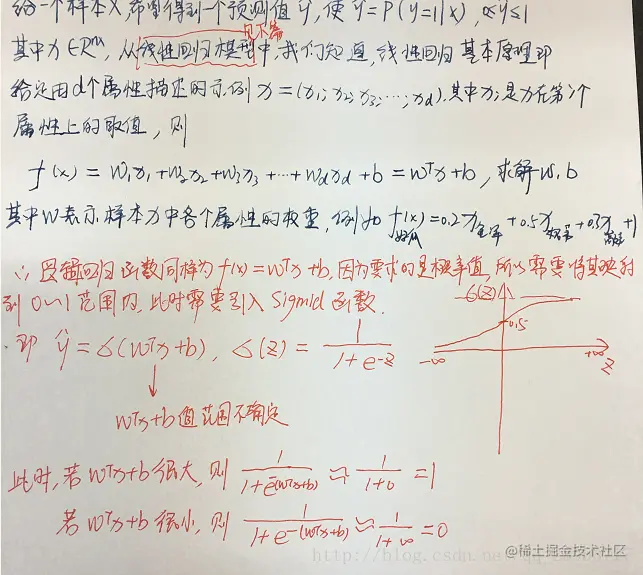 给一个样本x,希望得到一个预测值ŷ,使ŷ=P(y=1|x),0≤ŷ≤1
其中x∈Rⁿˣ,从线性回归模型中,我们知道,线性回归基本原理即
给定由d个属性描述的示例x=(x₁;x₂;x₃;…;xd),其中xi是x在第i个
属性上的取值,则
f(x)=w₁x₁+w₂x₂+w₃x₃+…+wdxd+b=wᵀx+b,求解w,b
其中w表示样本x中各个属性的权重,例如f(x)好瓜=0.2x色泽+0.5x根蒂+0.3x敲声+1
∴逻辑回归函数同样为f(x)=wᵀx+b,因为要求的是概率值,所以需要将其映射
到0~1范围内,此时需要引入Sigmid函数.
即 ŷ=σ(wᵀx+b), σ(z)=1/(1+e^-z)
σ(z)
0.5
-∞
+∞
z
wᵀx+b值范围不确定
此时,若wᵀx+b很大,则 1/(1+e^-(wᵀx+b)) ≈ 1/(1+0) =1
若wᵀx+b很小,则 1/(1+e^-(wᵀx+b)) ≈ 1/(1+∞) =0
http://blog.csdn.ne
@稀土掘金技术社区